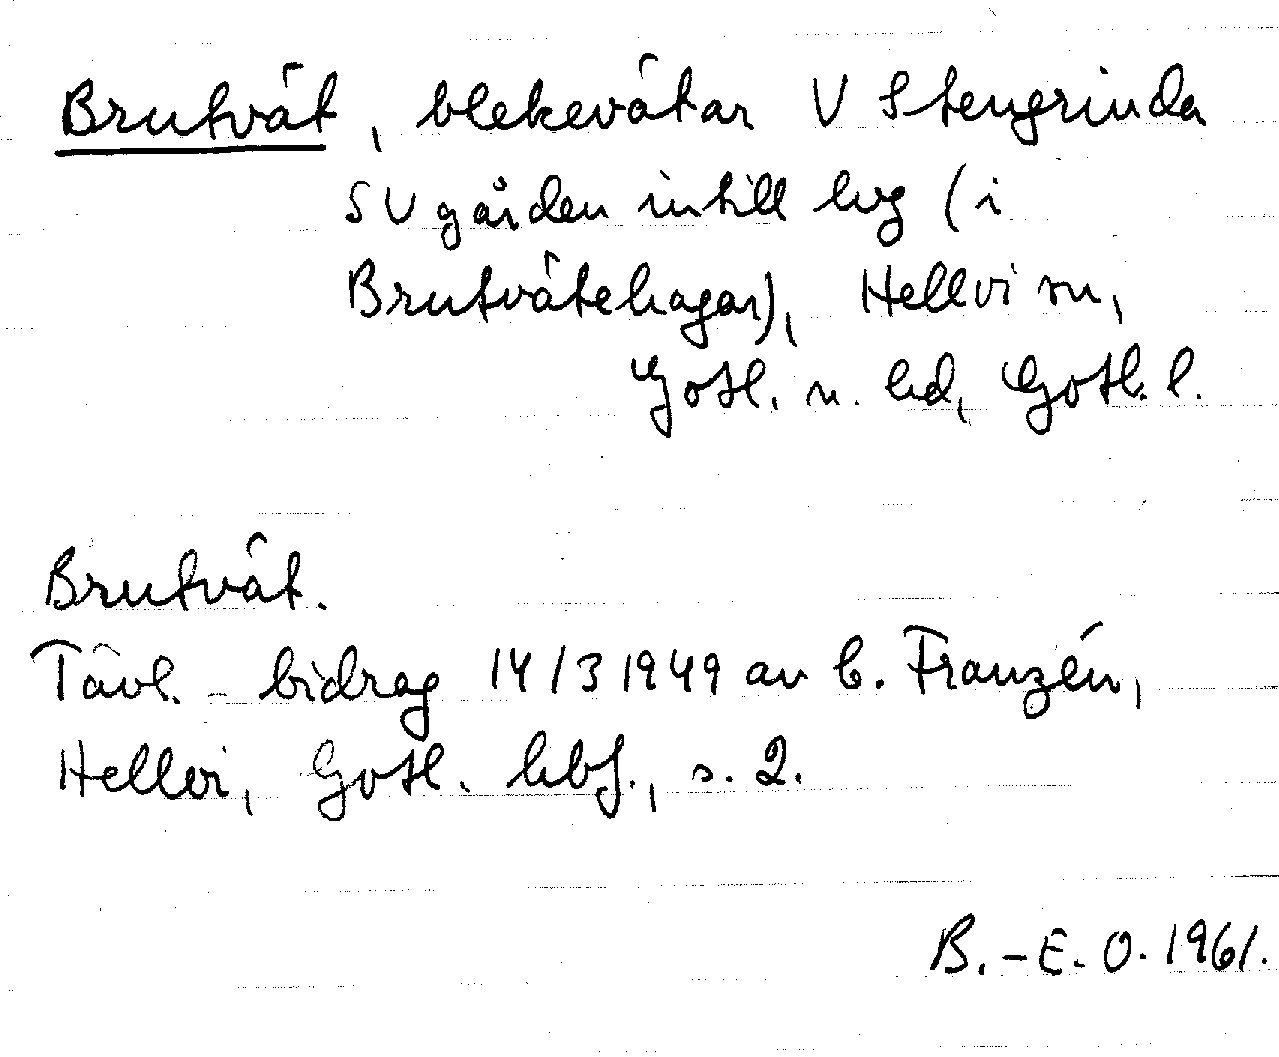 Brutvât, blekevâtar V Stengrinda
SV gården intill lvg (i
Brutvâtehagar), Hellvi sn,
Gotl. n. hd, Gotl. l.
Brutvât.
Tävl.-bidrag 14/3 1949 av C. Franzén,
Hellvi, Gotl. hbf., s. 2.
B.-E. O. 1961.